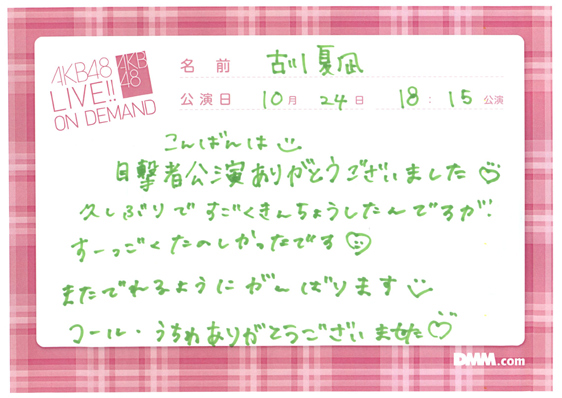 AKB48
LIVE!!
ON DEMAND
AKB
48
名 前 古川夏凪
公演日 10月 24日 18:15公演
こんばんは
目撃者公演ありがとうございました♡
久しぶりですごくきんちょうしたんですが!
すーっごくたのしかったです♡
またでれるようにがんばります
コール・うちわありがとうございました♡
DMM.com